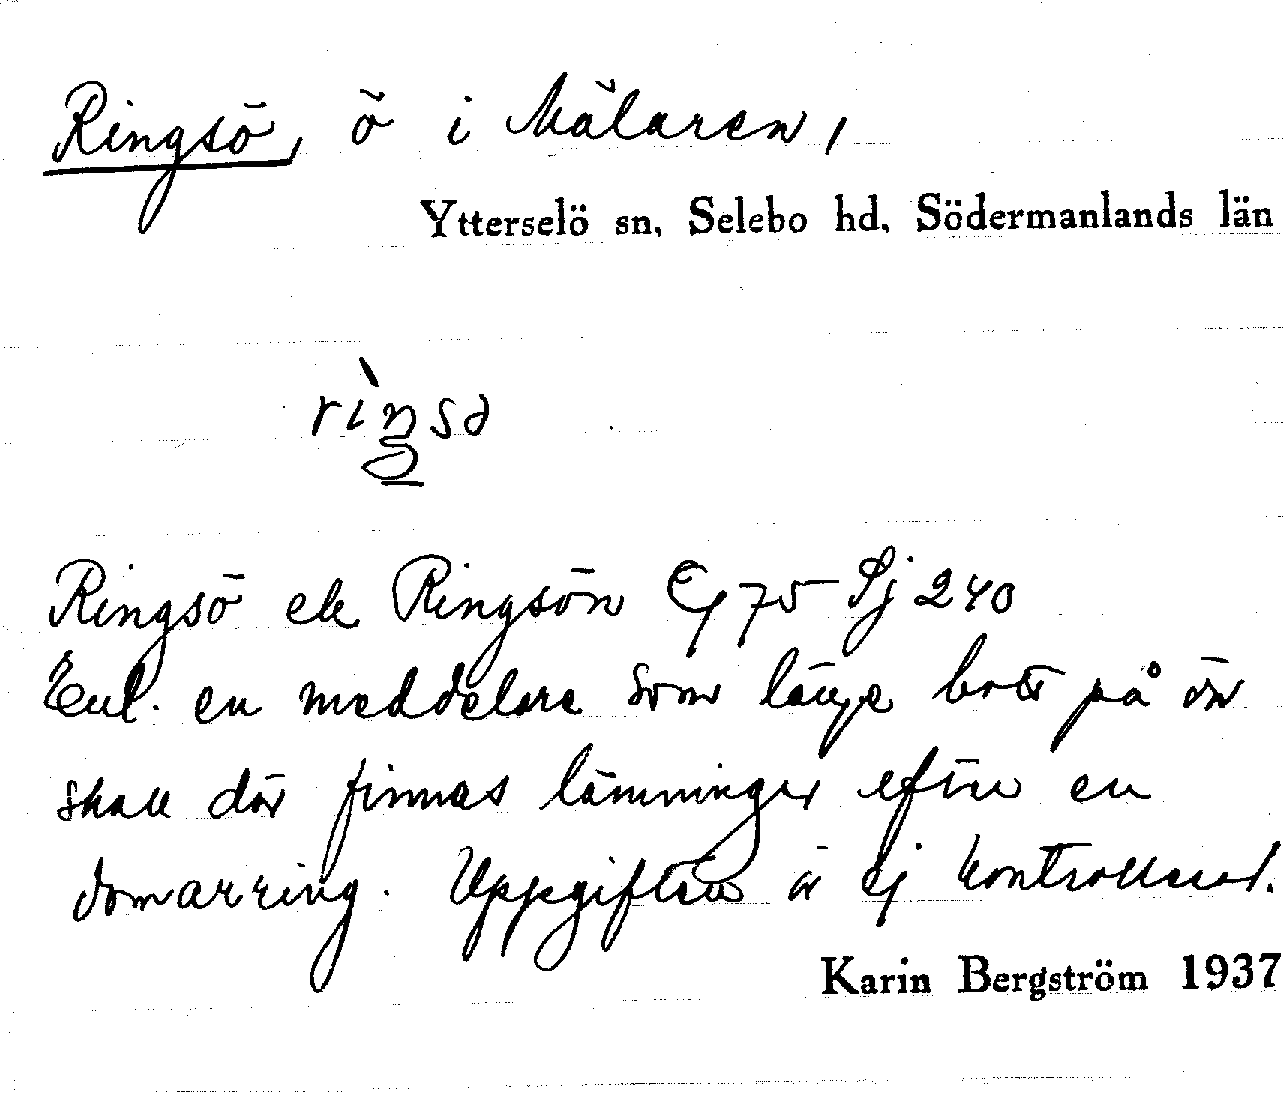 Ringsö, ö i Mälaren,
Ytterselö sn, Selebo hd, Södermanlands län
rìŋsə
Ringsö el. Ringsön Eg 75 Sj 240
Enl. en meddelare som länge bott på ön
skall där finnas lämningar efter en
domarring. Uppgiften är ej kontrollerad.
Karin Bergström 1937